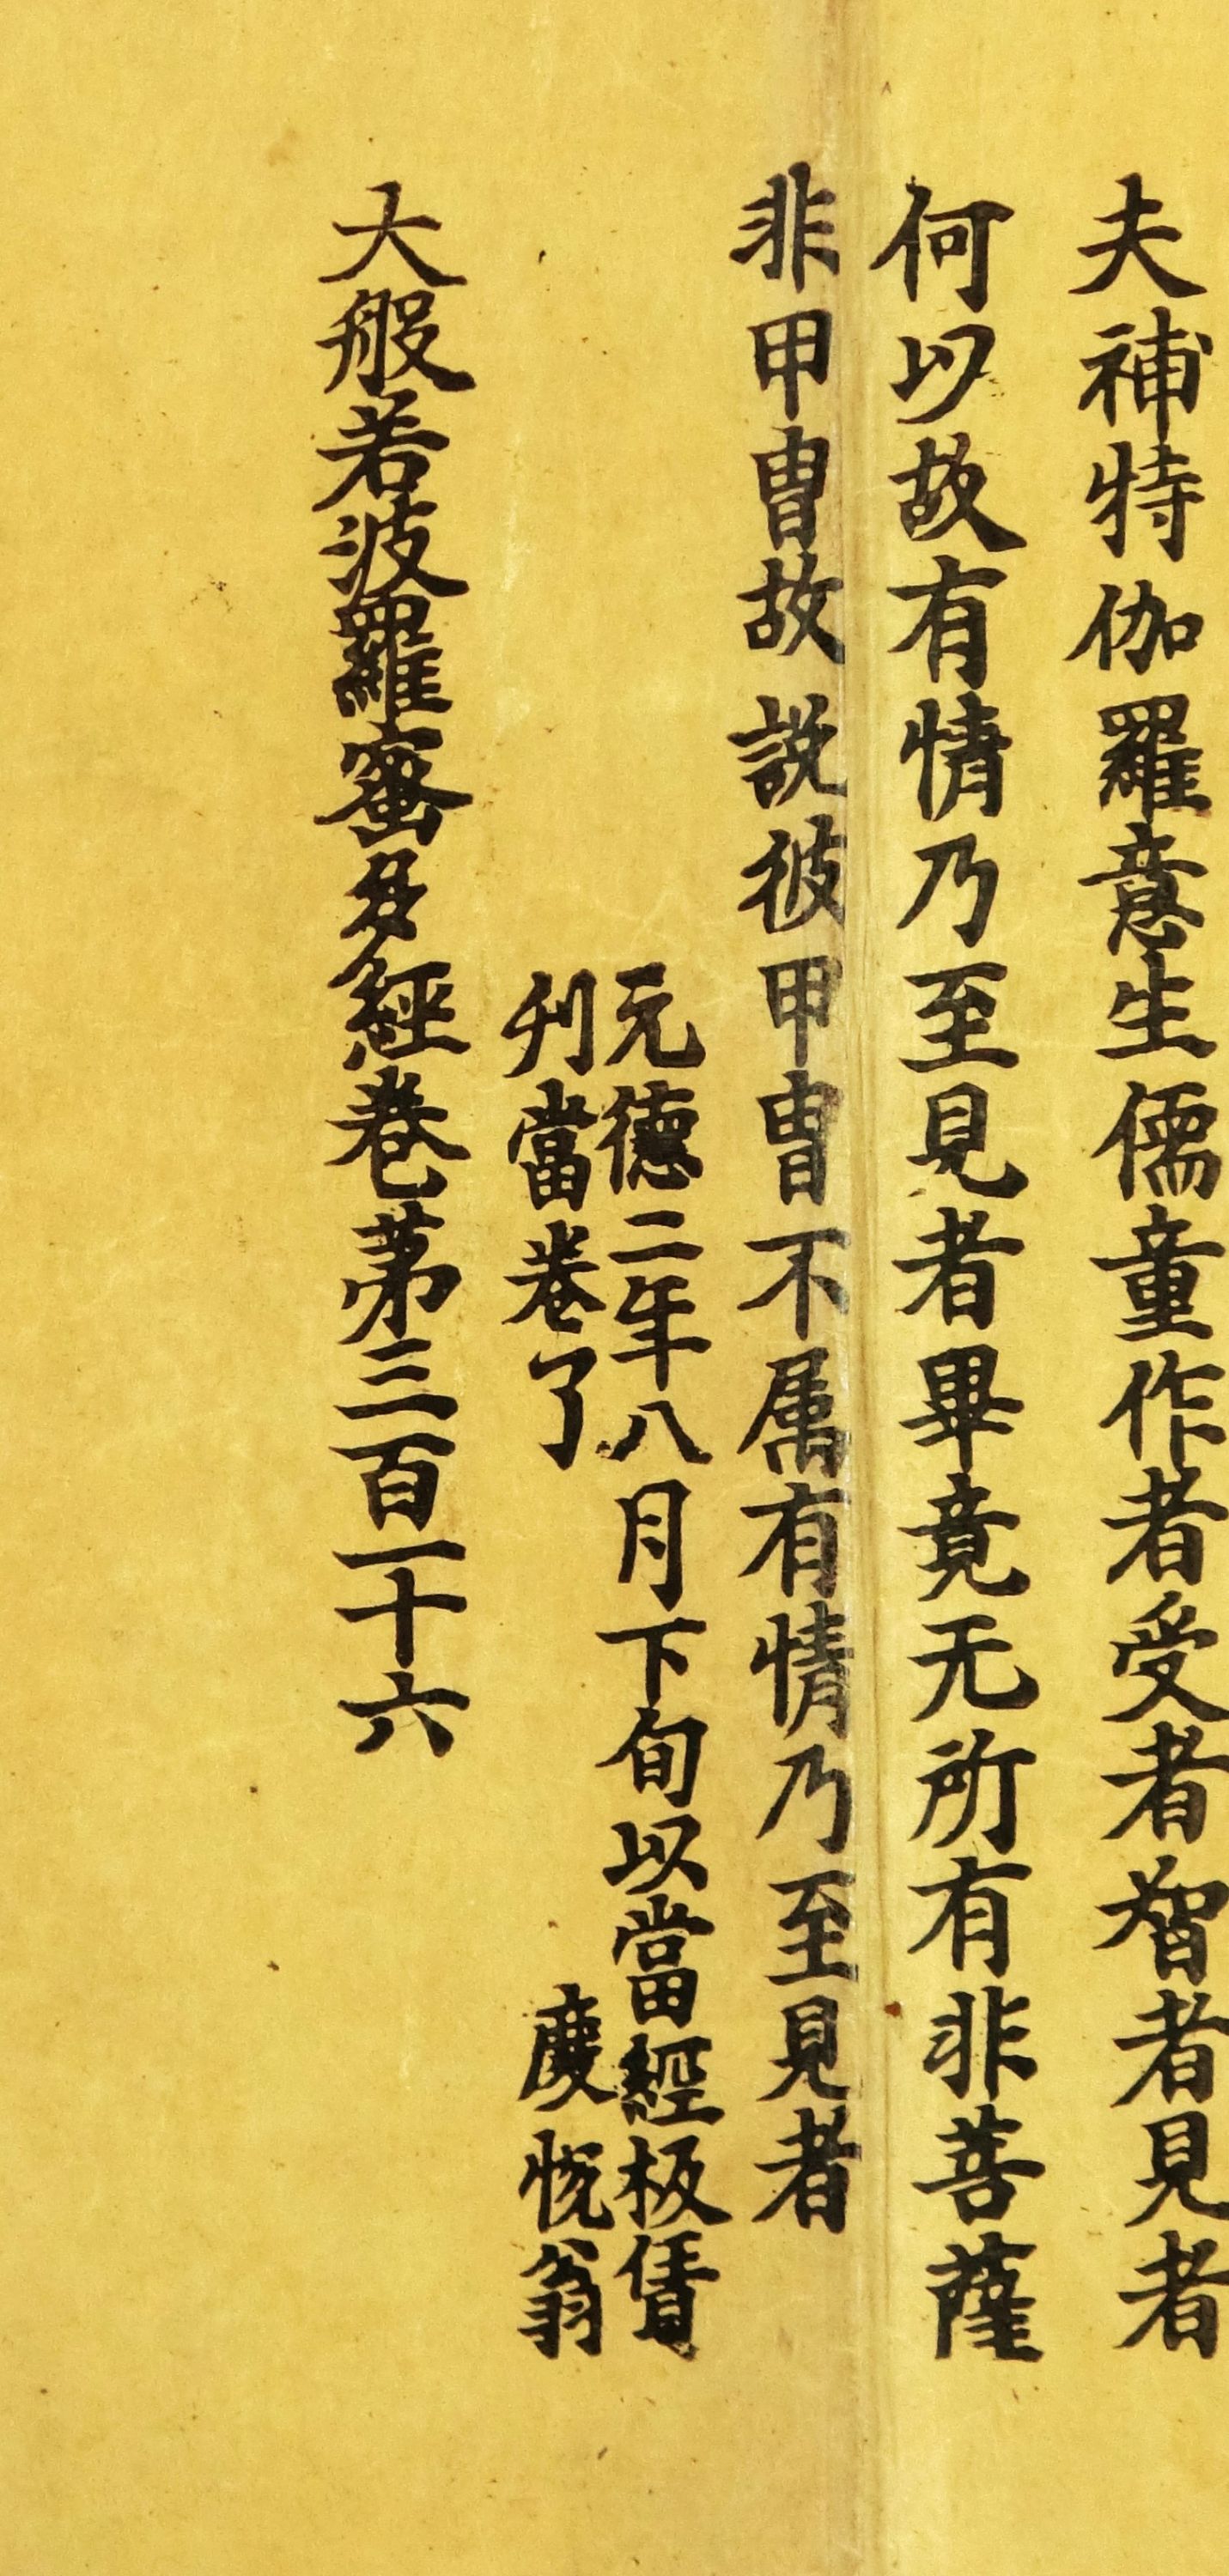 夫補特伽羅意生儒童作者受者智者見者
何以故有情乃至見者畢竟无所有非菩薩
非甲冑故說彼甲冑不属有情乃至見者
元德二年八月下旬以當經板賃
刋當卷了 慶悦翁
大般若波羅蜜多經卷第三百一十六